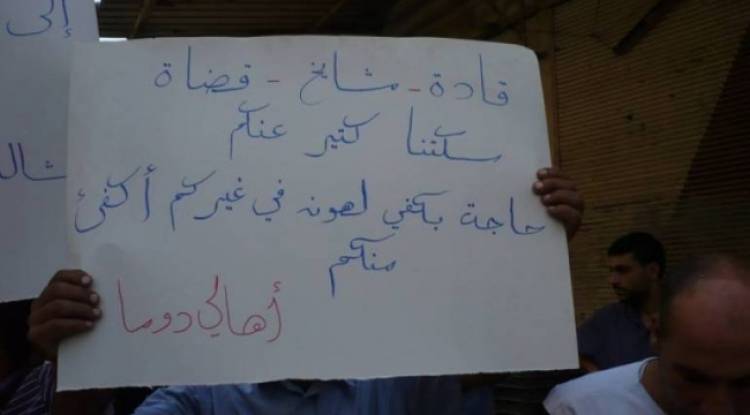 إلى
قادة - مشايخ - قضاة
سكتنا كتير عنكم
حاجة بكفي لهون في غيركم أكفئ
منكم
أهالي دوما